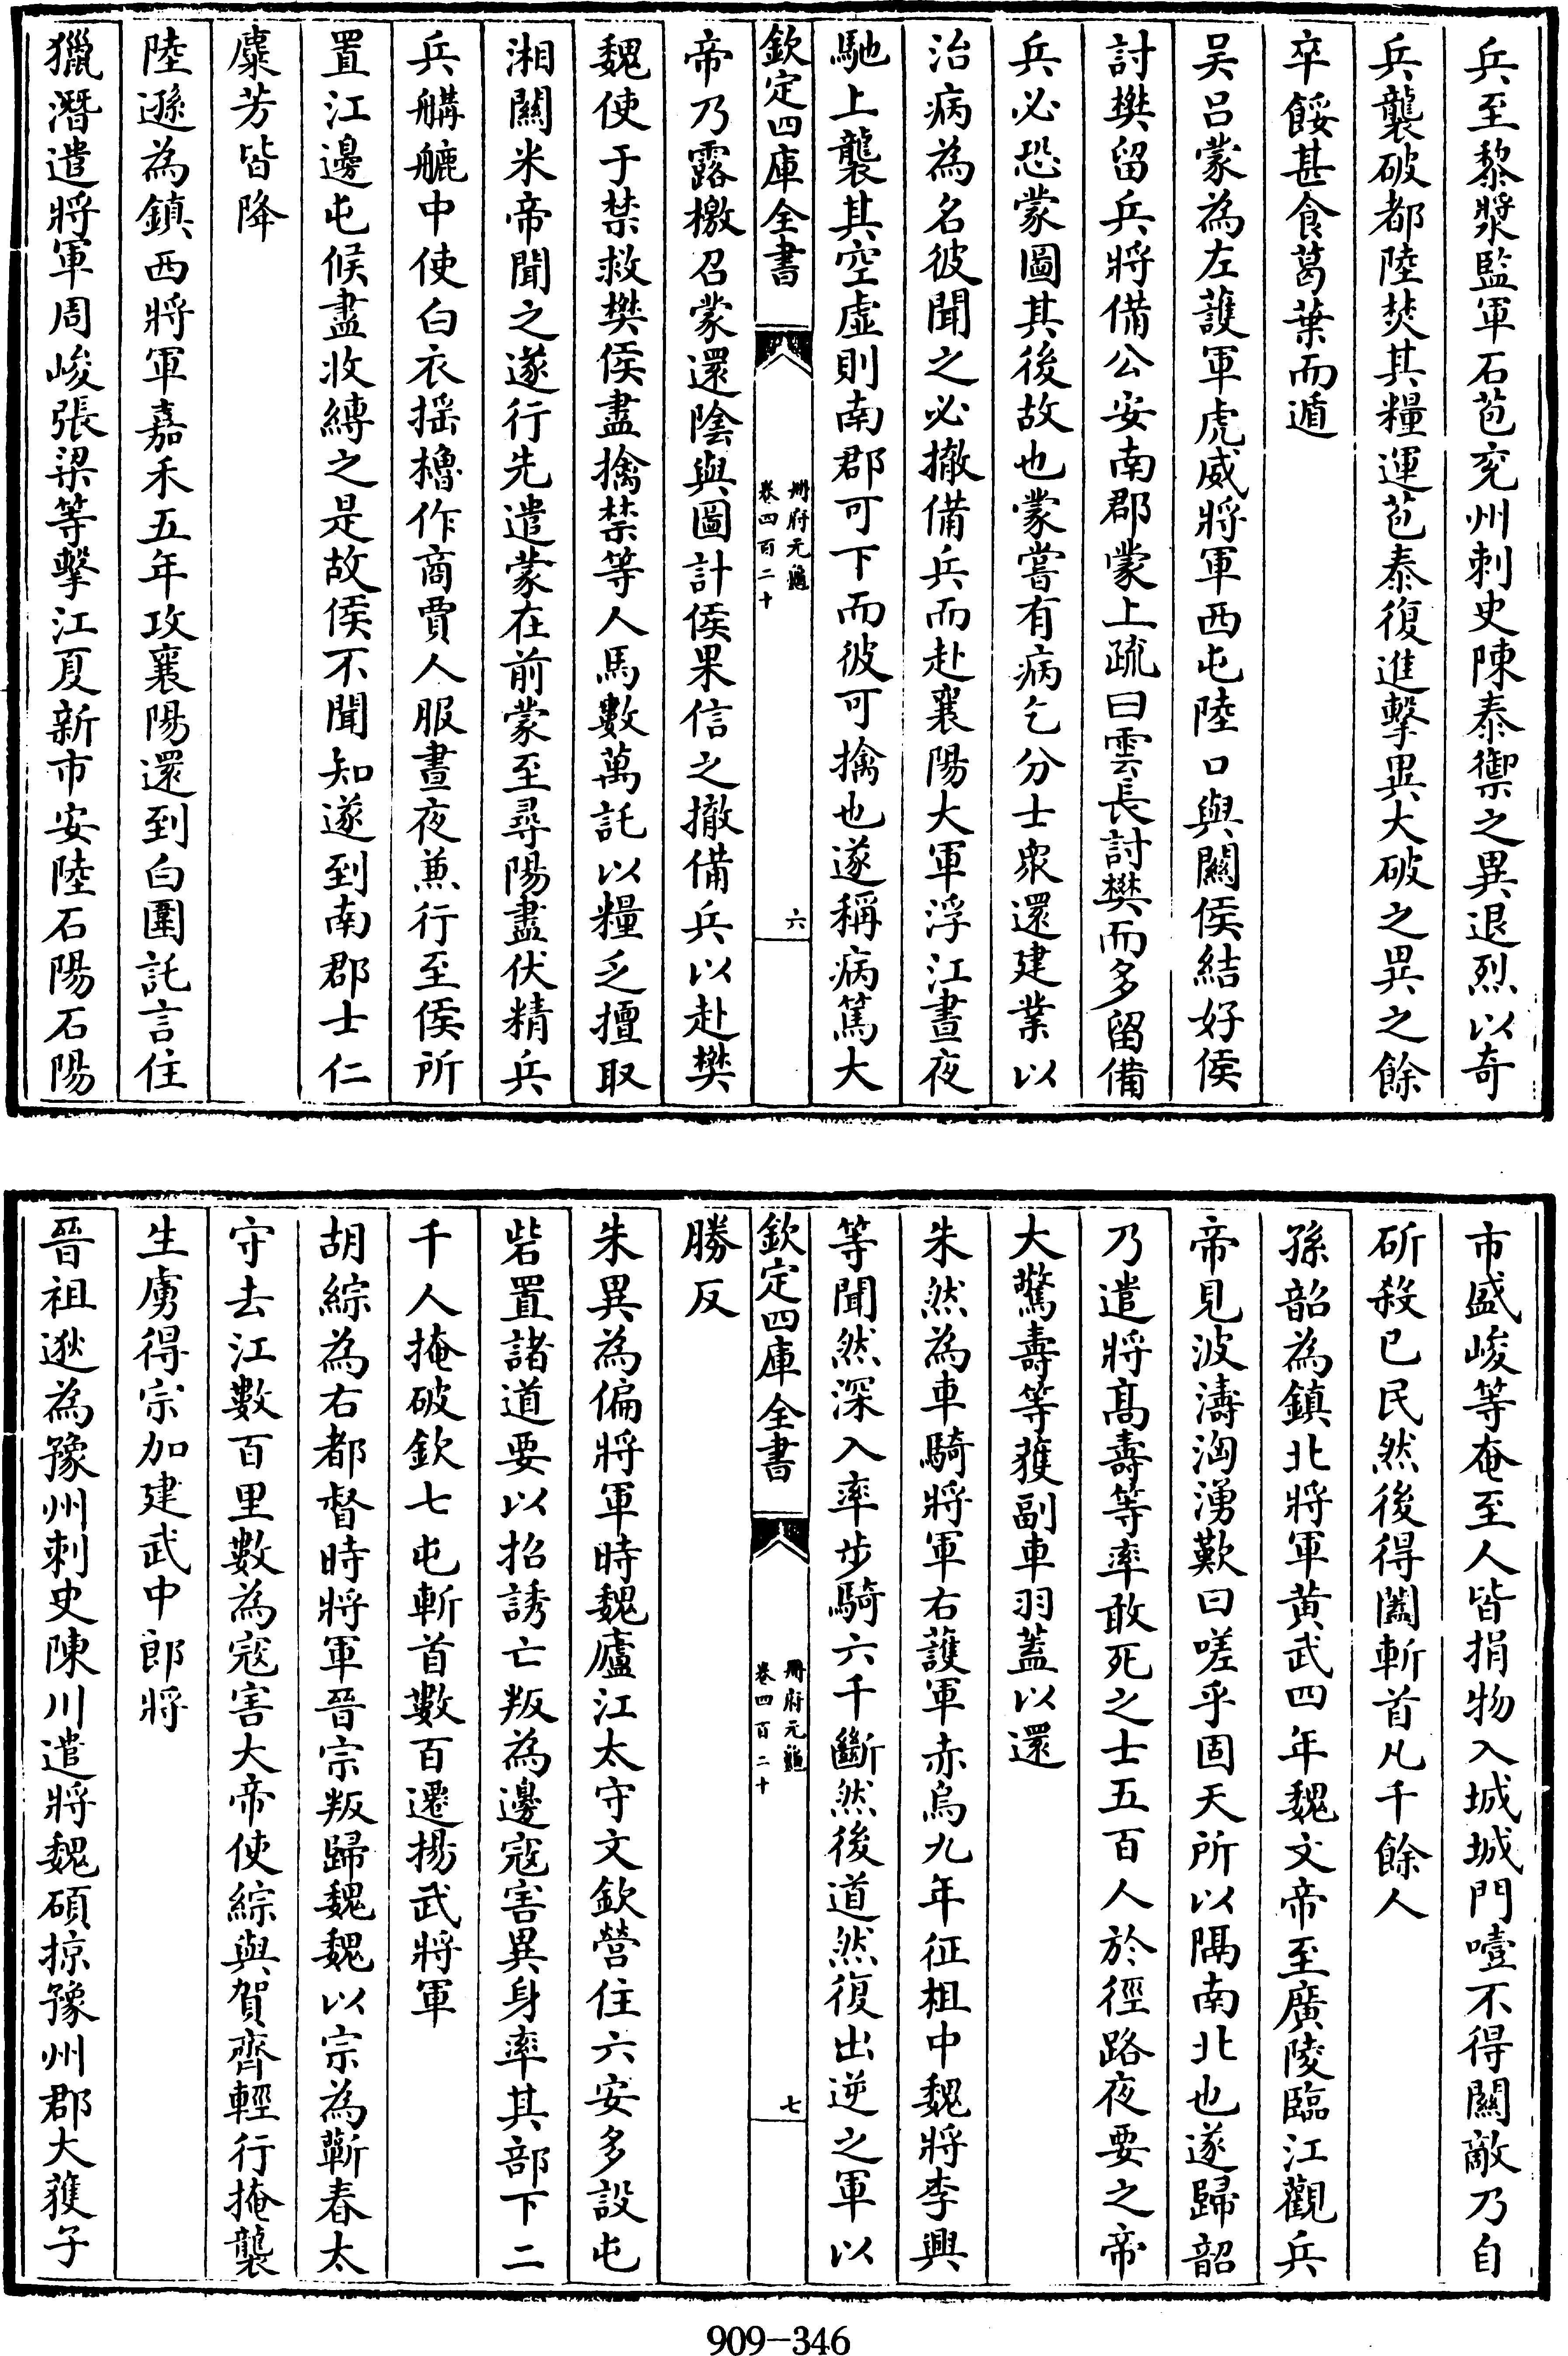 兵至黎漿監軍石苞兖州刺史陳泰禦之異退烈以奇
兵襲破都陸焚其糧運苞泰復進擊異大破之異之餘
卒餒甚食葛葉而遁
吴吕蒙為左護軍虎威將軍西屯陸口與關侯結好侯
討樊留兵將備公安南郡蒙上疏曰雲長討樊而多留備
兵必恐蒙圖其後故也蒙嘗有病乞分士衆還建業以
治病為名彼聞之必撤備兵而赴襄陽大軍浮江晝夜
馳上襲其空虛則南郡可下而彼可擒也遂稱病篤大
欽定四庫全書
册府元龜
卷四百二十
六
帝乃露檄召蒙還陰與圖計侯果信之撤備兵以赴樊
魏使于禁救樊侯盡擒禁等人馬數萬託以糧乏擅取
湘關米帝聞之遂行先遣蒙在前蒙至尋陽盡伏精兵
兵艩䑽中使白衣揺櫓作商賈人服晝夜兼行至侯所
置江邊屯候盡收縛之是故侯不聞知遂到南郡士仁
麋芳皆降
陸遜為鎮西將軍嘉禾五年攻襄陽還到白圍託言住
獵潛遣將軍周峻張梁等擊江夏新市安陸石陽石陽
市盛峻等奄至人皆捐物入城城門噎不得關敵乃自
斫殺已民然後得闔斬首凡千餘人
孫韶為鎮北將軍黄武四年魏文帝至廣陵臨江觀兵
帝見波濤洶湧歎曰嗟乎固天所以隔南北也遂歸韶
乃遣將髙壽等率敢死之士五百人於徑路夜要之帝
大驚壽等獲副車羽蓋以還
朱然為車騎將軍右護軍赤烏九年征柤中魏將李興
等聞然深入率步騎六千斷然後道然復出逆之軍以
欽定四庫全書
册府元龜
卷四百二十
七
勝反
朱異為偏將軍時魏廬江太守文欽營住六安多設屯
砦置諸道要以招誘亡叛為邊寇害異身率其部下二
千人掩破欽七屯斬首數百遷揚武將軍
胡綜為右都督時將軍晉宗叛歸魏魏以宗為蘄春太
守去江數百里數為寇害大帝使綜與賀齊輕行掩襲
生虜得宗加建武中郎將
晉祖逖為豫州刺史陳川遣將魏碩掠豫州郡大獲子
909-346